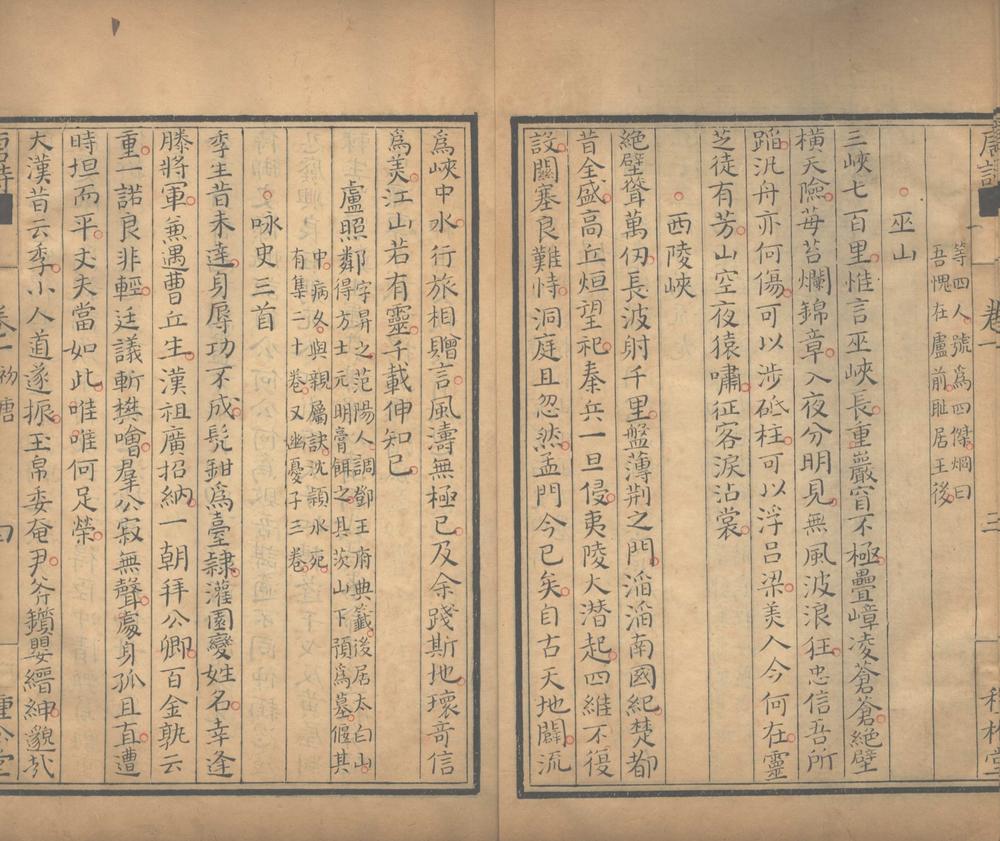 等四人號為四傑烱曰
吾愧在盧前恥居王後
巫山
三峽七百里惟言巫峽長重巖窅不極疊嶂凌蒼蒼絶壁
橫天險莓苔爛錦章入夜分明見無風波浪狂忠信吾所
蹈汎舟亦何傷可以涉砥柱可以浮呂梁美人今何在靈
芝徒有芳山空夜猿嘯征客淚沾裳
西陵峽
絶壁聳萬仞長波射千里盤薄荆之門滔滔南國紀楚都
昔全盛高丘烜望祀秦兵一旦侵夷陵火潜起四維不復
設關塞良難恃洞庭且忽然孟門今已矣自古天地闢流
為峽中水行旅相贈言風濤無極已及余踐斯地瓌竒信
為美江山若有靈千載伸知已
盧照鄰
字昇之范陽人調鄧王府典籤後居太白山
得方士元明膏餌之具茨山下預為墓偃其
中病久與親屬訣沈潁水死
有集二十卷又幽憂子三卷
咏史三首
季生昔未達身辱功不成髡鉗為臺隷灌園變姓名幸逢
滕將軍兼遇曹丘生漢祖廣招納一朝拜公卿百金孰云
重一諾良非輕廷議斬樊噲羣公寂無聲處身孤且直遭
時坦而平丈夫當如此唯唯何足榮
大漢昔云季小人道遂振玉帛委奄尹斧鑕嬰縉紳邈哉
卷一
三
卷一
初唐
四